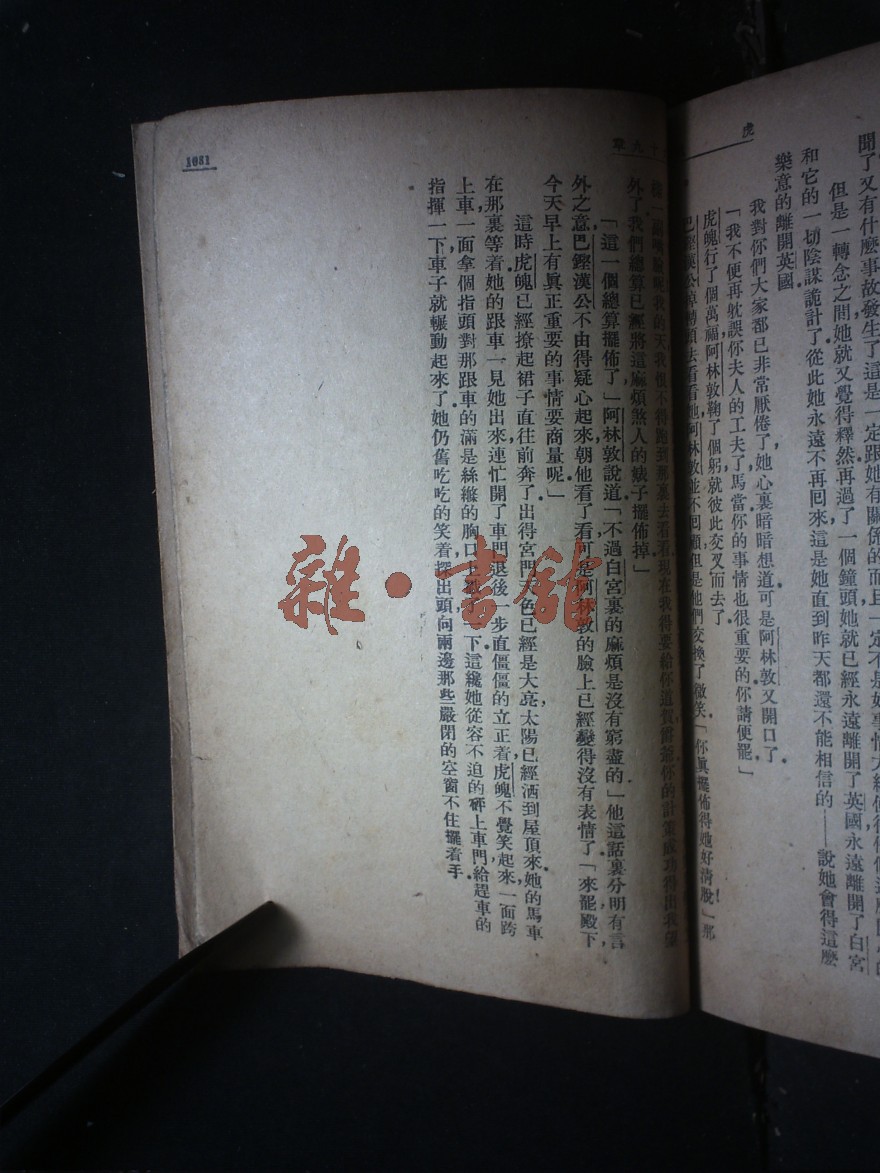 虎
聞了又有什麼事故發生了這是一定跟她有關係的而且一定不是好事情
但是一轉念之間她就又覺得釋然再過了一個鐘頭她就已經永遠離開了英國永遠離開了白宮
和它的一切陰謀詭計了從此她永遠不再回來這是她直到昨天都還不能相信的——說她會得這麼
樂意的離開英國
我對你們大家都已非常厭倦了她心裏暗暗想道可是阿林敦又開口了
「我不便再躭誤你夫人的工夫了馬當你的事情也很重要的你請便罷」
虎魄行了個萬福阿林敦鞠了個躬就彼此交叉而去了
巴鏗漢公掉轉頭去看看她阿林敦並不回顧但是他們交換了微笑「你眞擺佈得她好淸脫」那
十九章
現在我得要給你道賀爵爺你的計策成功得出我意
外了我們總算已經將這麻煩煞人的婊子擺佈掉」
「這一個總算擺佈了」阿林敦說道「不過白宮裏的麻煩是沒有窮盡的」他這話裏分明有言
外之意巴鏗漢公不由得疑心起來朝他看了看可是阿林敦的臉上已經變得沒有表情了「來罷殿下
今天早上有眞正重要的事情要商量呢」
這時虎魄已經撩起裙子直往前奔了出得宮門天色已經是大亮太陽已經洒到屋頂來她的馬車
在那裏等着她的跟車一見她出來連忙開了車門退後一步直僵僵的立正着虎魄不覺笑起來一面跨
上車一面拿個指頭對那跟車的滿是絲縧的胸口上一下這纔她從容不迫的砰上車門給趕車的
指揮一下車子就輾動起來了她仍舊吃吃的笑着探出頭向兩邊那些嚴閉的空窗不住擺着手
1031
雜·書館